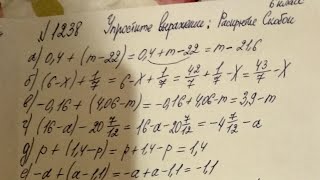 6 класс
N 1238 Упростите выражение; Раскройте скобки
а) 0,4 + (m-22) = 0,4 + m - 22 = m - 21,6
б) (6-x) + 1/7 = 6 - x + 1/7 = 42/7 + 1/7 - x = 43/7 - x
в) -0,16 + (4,06-m) = -0,16 + 4,06 - m = 3,9 - m
г) (16-a) - 20 7/12 = 16 - a - 20 7/12 = -4 7/12 - a
д) p + (1,4-p) = p + 1,4 - p = 1,4
е) -a + (a-1,1) = -a + a - 1,1 = -1,1